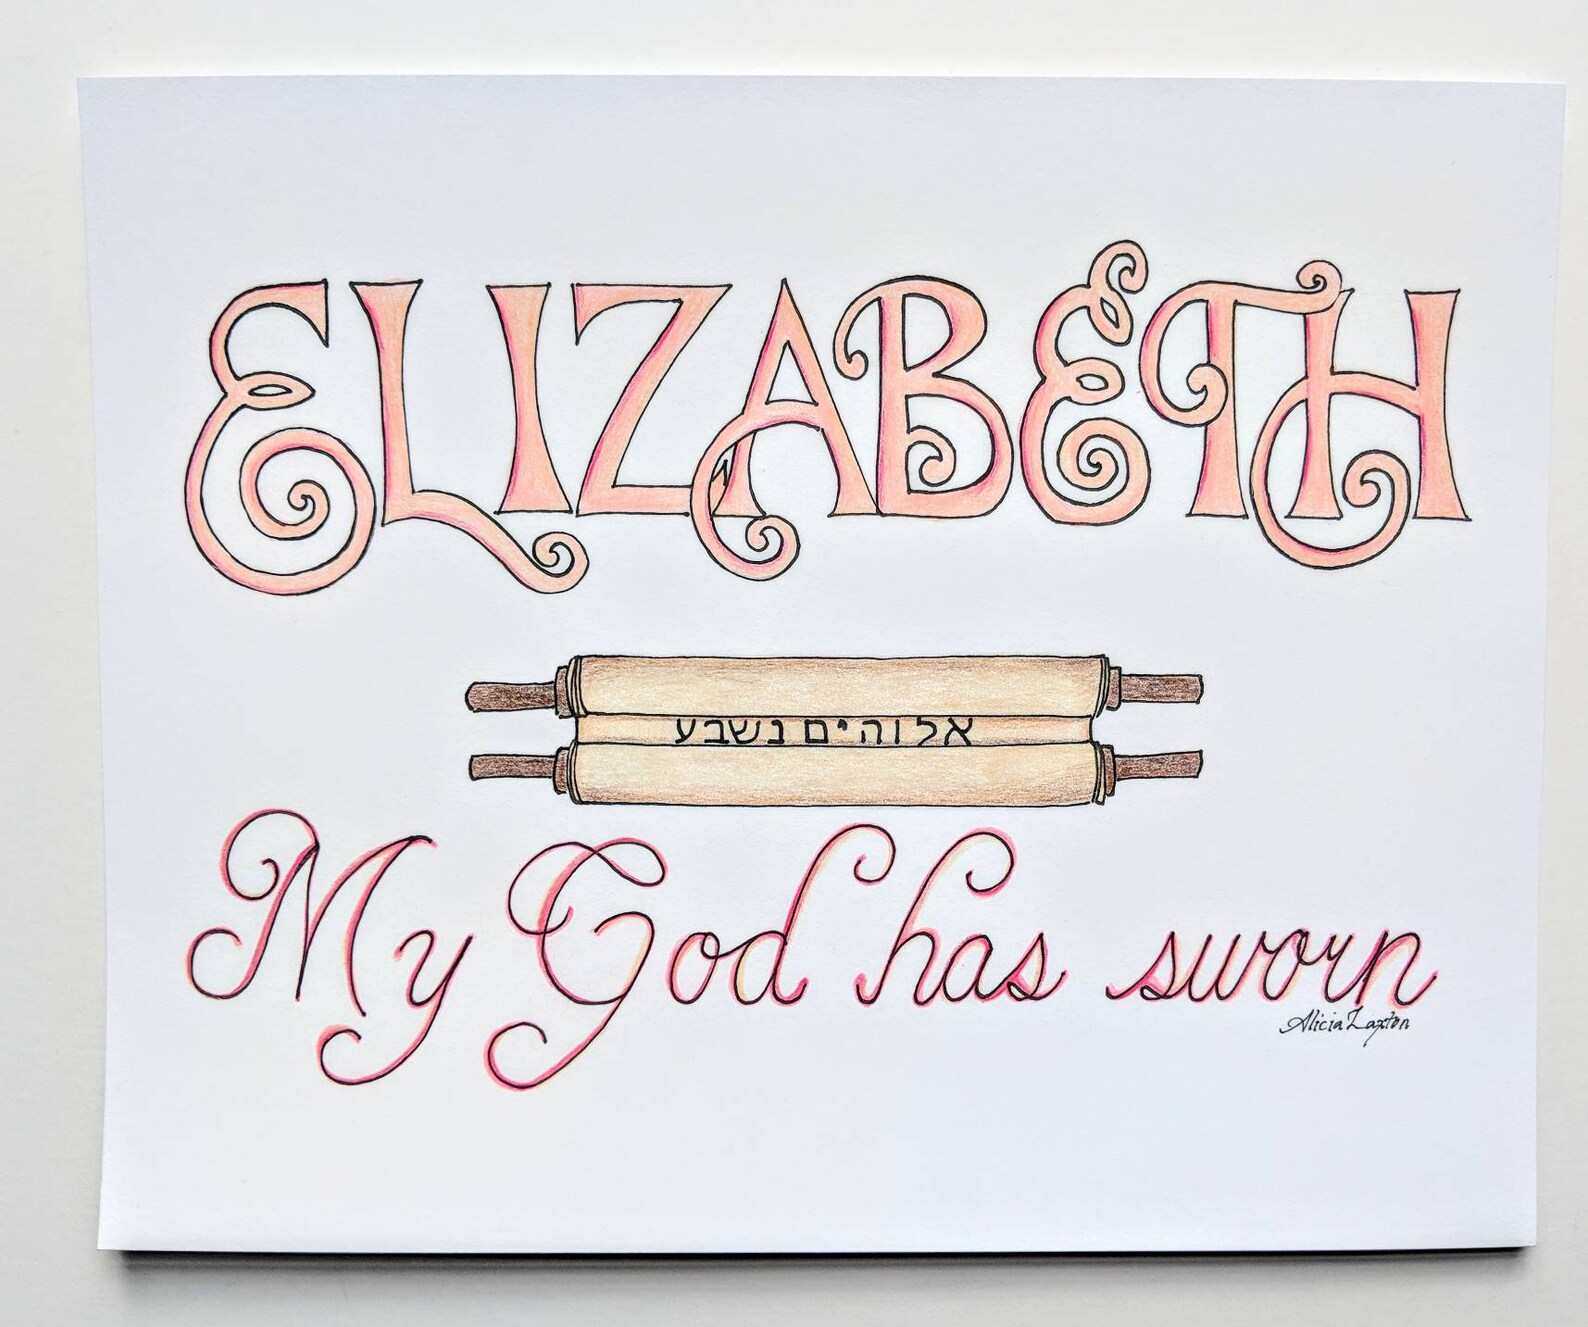 ELIZABETH
אלוהים נשבע
My God has sworn
Alicia Laxton